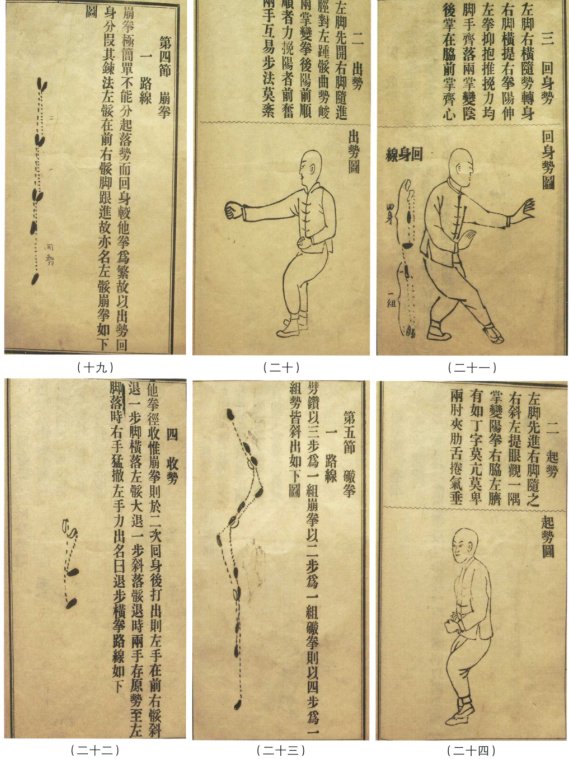 第四節 崩拳
一 路線
崩拳極簡單不能分起落勢而回身較他拳爲繁故以出勢回
身分段其錬法左骽在前右骽脚跟進故亦名左骽崩拳如下
圖
(十九)
二 出勢
左脚先開右脚隨進
脛對左踵骽曲勢峻
兩掌變拳後陽前順
順者力挽陽者前奮
兩手互易步法莫紊
出勢圖
(二十)
三 回身勢
左脚右橫隨勢轉身
右脚橫提右拳陽伸
左拳抑抱推挽力均
脚手齊落兩掌變陰
後掌在脇前掌齊心
回身勢圖
回身線
回身
一組
(二十一)
四 收勢
他拳徑收惟崩拳則於二次囘身後打出則左手在前右骽斜
退一步脚橫落左骽大退一步斜落骽退時兩手存原勢至左
脚落時右手猛撤左手力出名曰退步橫拳路線如下
(二十二)
第五節 礮拳
一 路線
劈鑽以三步爲一組崩拳以二步爲一組礮拳則以四步爲一
組勢皆斜出如下圖
(二十三)
二 起勢
左脚先進右脚隨之
右斜左提眼觀一隅
掌變陽拳右脇左臍
有如丁字莫亢莫卑
兩肘夾肋舌捲氣垂
起勢圖
(二十四)